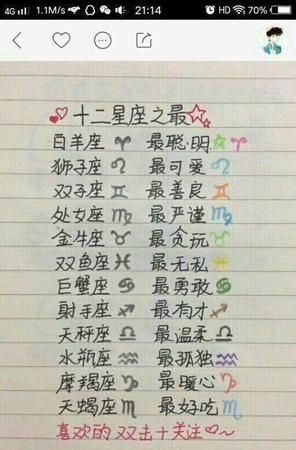 4G 1.1M/s 21:14 HD 70%
十二星座之最
白羊座 最聪明
狮子座 最可爱
双子座 最善良
处女座 最严谨
金牛座 最贪玩
双鱼座 最无私
巨蟹座 最勇敢
射手座 最有才
天秤座 最温柔
水瓶座 最孤独
摩羯座 最暖心
天蝎座 最好吃
喜欢的双击+关注